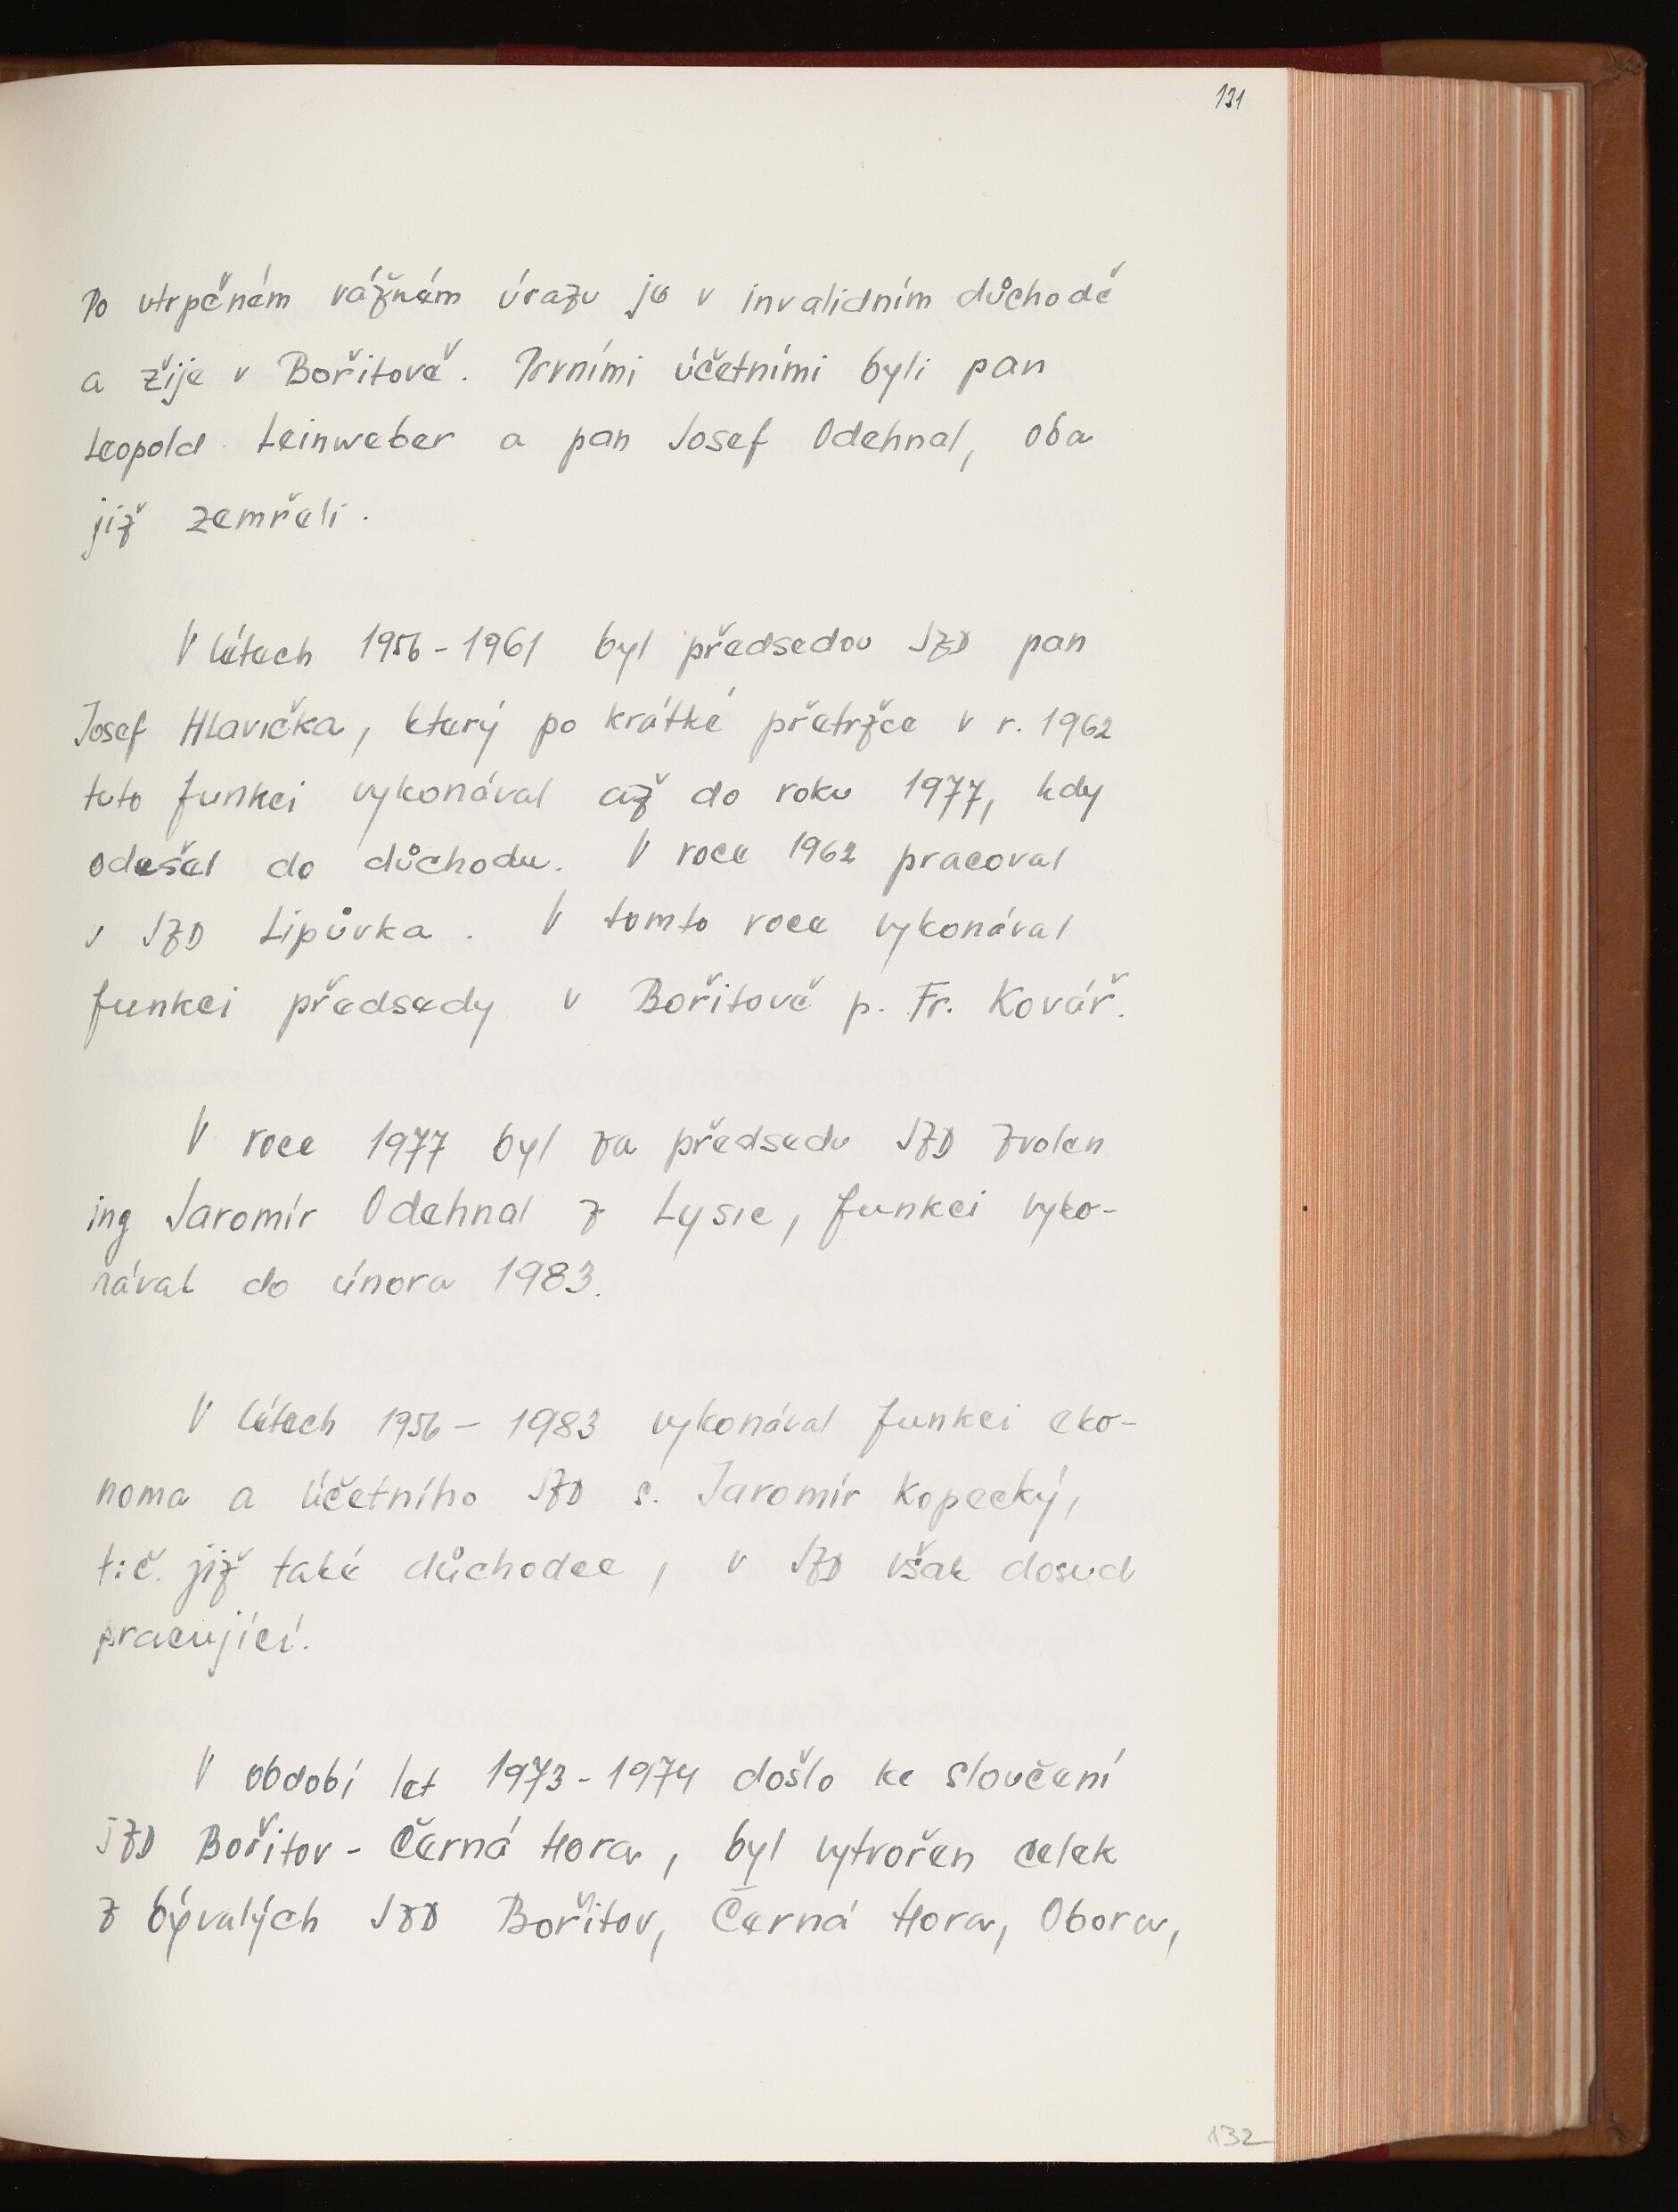 131
Po utrpěném vážném úrazu je v invalidním důchodě
a žije v Bořitově. Prvními účetními byli pan
Leopold Leinweber a pan Josef Odehnal, oba
již zemřeli.
V létech 1956-1961 byl předsedou JZD pan
Josef Hlavička, který po krátké přetržce v r. 1962
tuto funkci vykonával až do roku 1977, kdy
odešel do důchodu. V roce 1962 pracoval
v JZD Lipůvka. V tomto roce vykonával
funkci předsedy v Bořitově p. Fr. Kovář.
V roce 1977 byl za předsedu JZD zvolen
ing Jaromír Odehnal z Lysic, funkci vyko-
nával do února 1983.
V létech 1956 - 1983 vykonával funkci eko-
noma a účetního JZD s. Jaromír Kopecký,
t.č. již také důchodce, v JZD však dosud
pracující.
V období let 1973-1974 došlo ke sloučení
JZD Bořitov - Černá Hora, byl vytvořen celek
z bývalých JZD Bořitov, Černá Hora, Obora,
132